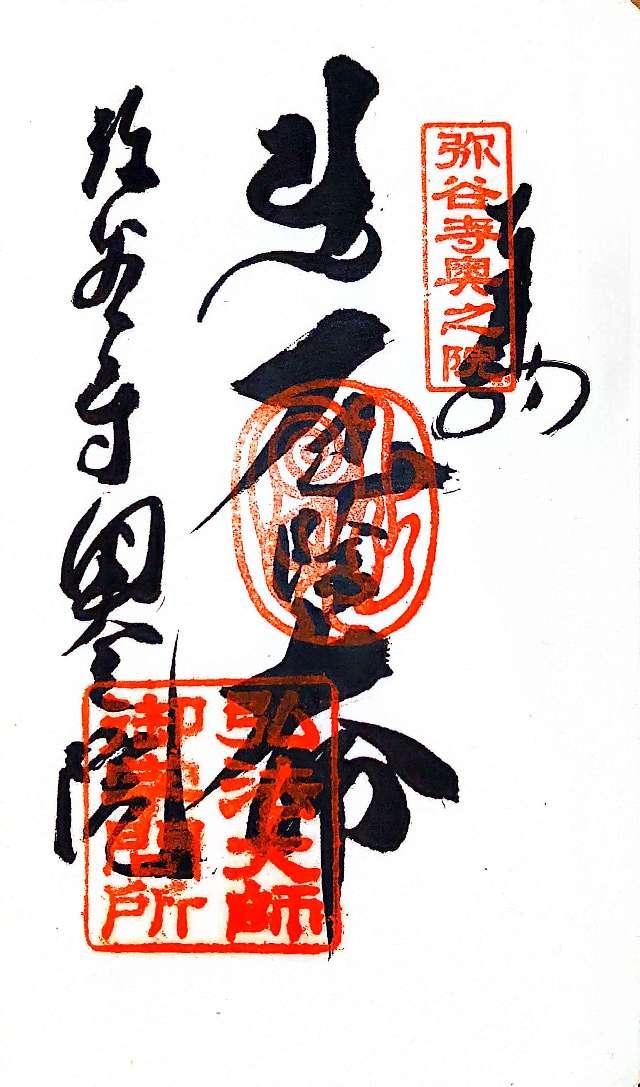 弥谷寺奥之院
厄除大師
弥谷寺奥之院
弘法大師
御学問所